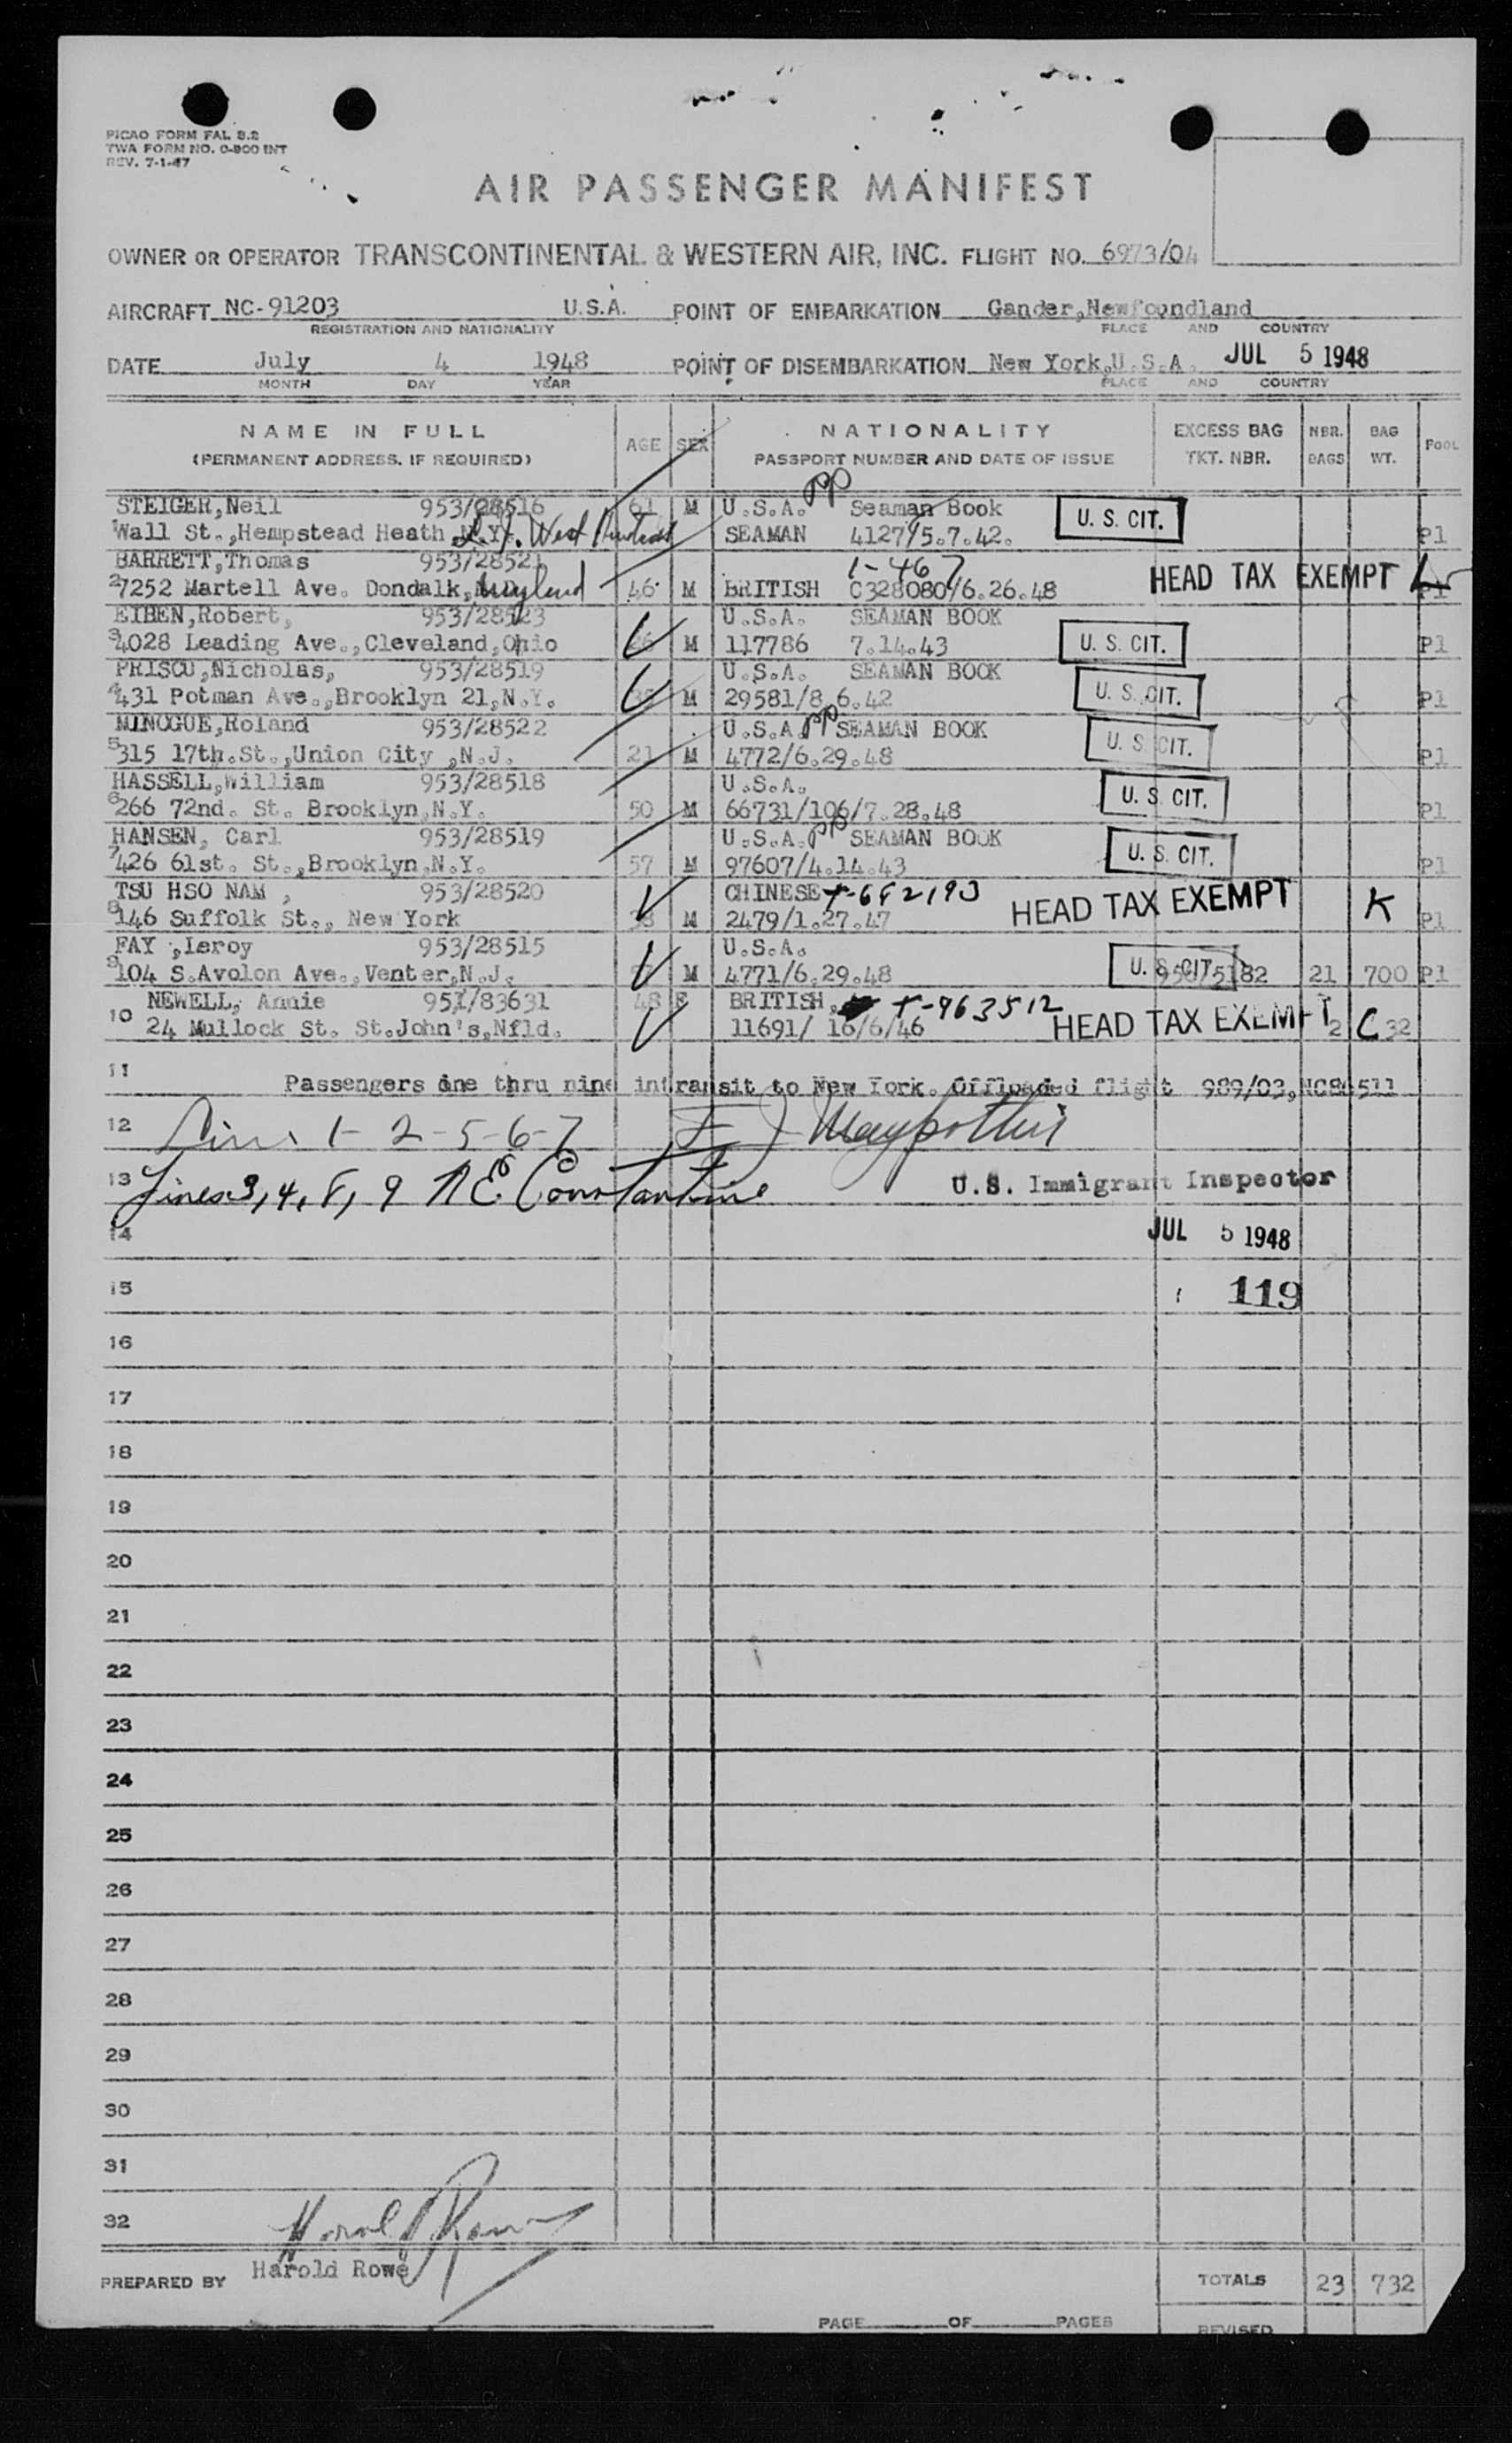 PICAO FORM FAL 8.2
TWA FORM NO. O-800 INT
REV. 7-1-47
AIR PASSENGER MANIFEST
OWNER OR OPERATOR TRANSCONTINENTAL & WESTERN AIR, INC. FLIGHT NO. 6973/04
AIRCRAFT NC-91203 U.S.A. POINT OF EMBARKATION Gander,Newfoundland
REGISTRATION AND NATIONALITY PLACE AND COUNTRY
DATE July 4 1948 POINT OF DISEMBARKATION New York,U.S.A. JUL 5 1948
MONTH DAY YEAR PLACE AND COUNTRY
NAME IN FULL AGE SEX NATIONALITY EXCESS BAG NBR. BAG POOL
(PERMANENT ADDRESS. IF REQUIRED) PASSPORT NUMBER AND DATE OF ISSUE TKT. NBR. BAGS WT.
STEIGER,Neil 953/28516 61 M U.S.A. PP Seaman Book U. S. CIT.
Wall St.,Hempstead Heath L.I. West SEAMAN 4127/5.7.42. P1
BARRETT,Thomas 953/28521 1-467
2 7252 Martell Ave. Dondalk, Maryland 46 M BRITISH C328080/6.26.48 HEAD TAX EXEMPT
EIBEN,Robert, 953/28523 U.S.A. SEAMAN BOOK
3 4028 Leading Ave.,Cleveland,Ohio 26 M 117786 7.14.43 U. S. CIT. P1
PRISCU,Nicholas, 953/28519 U.S.A. SEAMAN BOOK
4 431 Potman Ave.,Brooklyn 21,N.Y. M 29581/8.6.42 U. S. CIT. P1
MINOGUE,Roland 953/28522 U.S.A. PP SEAMAN BOOK
5 315 17th.St.,Union City ,N.J. 21 M 4772/6.29.48 U. S. CIT. P1
HASSELL,William 953/28518 U.S.A.
6 266 72nd. St. Brooklyn,N.Y. 50 M 66731/106/7.28.48 U. S. CIT. P1
HANSEN, Carl 953/28519 U.S.A. PP SEAMAN BOOK
7 426 61st. St.,Brooklyn,N.Y. 57 M 97607/4.14.43 U. S. CIT. P1
TSU HSO NAM , 953/28520 CHINESE T-682193
8 146 Suffolk St., New York 38 M 2479/1.27.47 HEAD TAX EXEMPT K P1
FAY ,Leroy 953/28515 U.S.A.
9 104 S.Avolon Ave.,Venter,N.J. M 4771/6.29.48 U. S. CIT. 950/5182 21 700 P1
NEWELL, Annie 951/83631 48 F BRITISH, T-963512
10 24 Mullock St. St.John's,Nfld. 11691/ 16/6/46 HEAD TAX EXEMPT 2 C 32
11 Passengers one thru nine intransit to New York. Offloaded flight 989/03,NC86511
12 Lines 1-2-5-6-7 F J Maypother
13 Lines 3, 4, 8, 9 N E Constantine U.S. Immigrant Inspector
14 JUL 5 1948
15 119
16
17
18
19
20
21
22
23
24
25
26
27
28
29
30
31
32 Harold Rowe
PREPARED BY Harold Rowe TOTALS 23 732
PAGE OF PAGES REVISED